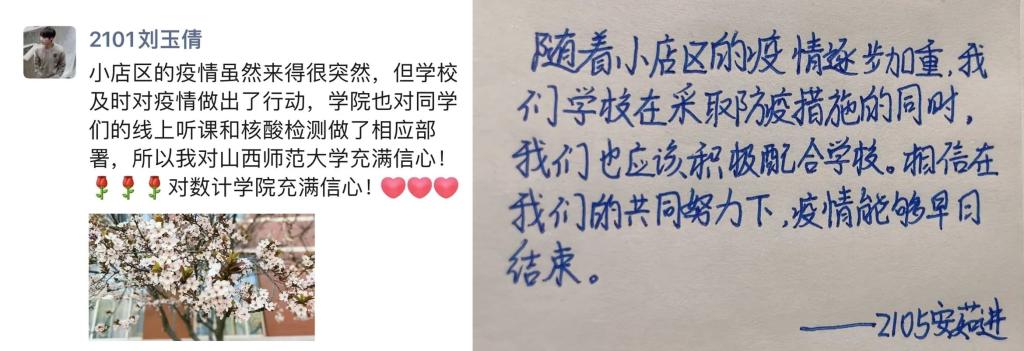 2101刘玉倩
小店区的疫情虽然来得很突然，但学校
及时对疫情做出了行动，学院也对同学
们的线上听课和核酸检测做了相应部
署，所以我对山西师范大学充满信心！
🌹🌹🌹对数计学院充满信心！❤❤❤
随着小店区的疫情逐步加重，我
们学校在采取防疫措施的同时，
我们也应该积极配合学校。相信在
我们的共同努力下，疫情能够早日
结束。
——2105安茹进